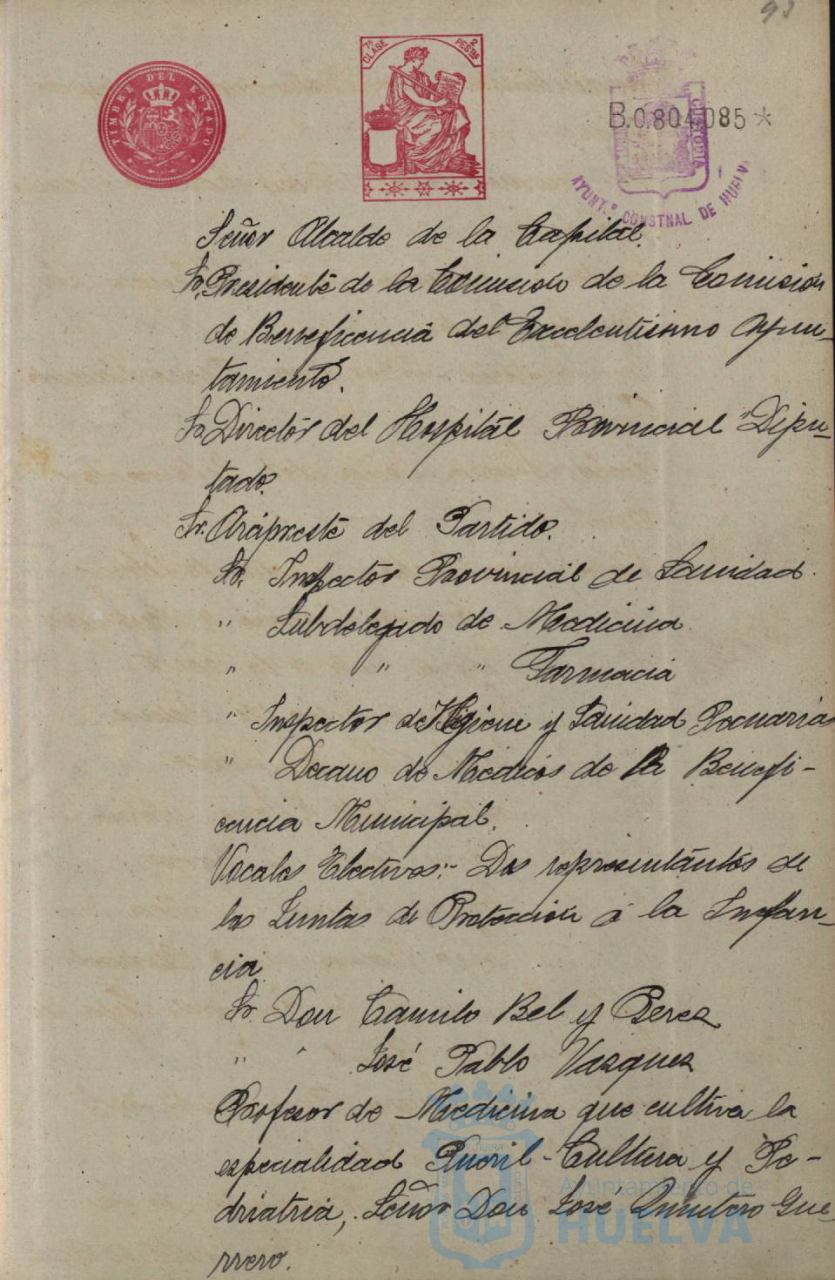 93
TIMBRE DEL ESTADO
7ª CLASE 2 PESTAS
B.0.804.085*
CUSTODIA
AYUNT.º CONSTNAL DE HUELVA
Señor Alcalde de la Capital.
Sr. Presidente de la Comisión de la Comisión
de Beneficencia del Excelentisimo Ayun-
tamiento.
Sr. Director del Hospital Provincial Dipu-
tado.
Sr. Arcipreste del Partido.
Sr. Inspector Provincial de Sanidad.
" Subdelegado de Medicina
" " " Farmacia
" Inspector de Higiene y Sanidad Pecuarias
" Decano de Medicos de la Benefi-
cencia Municipal.
Vocales Electivos:- Dos representantes de
las Juntas de Protección á la Infan-
cia
Sr. Don Camilo Bel y Perez
" " José Pablo Vazquez
Profesor de Medicina que cultiva la
especialidad Pueril-Cultura y Pe-
driatria, Señor Don José Quintero Gue-
rrero.
Ayuntamiento de
HUELVA